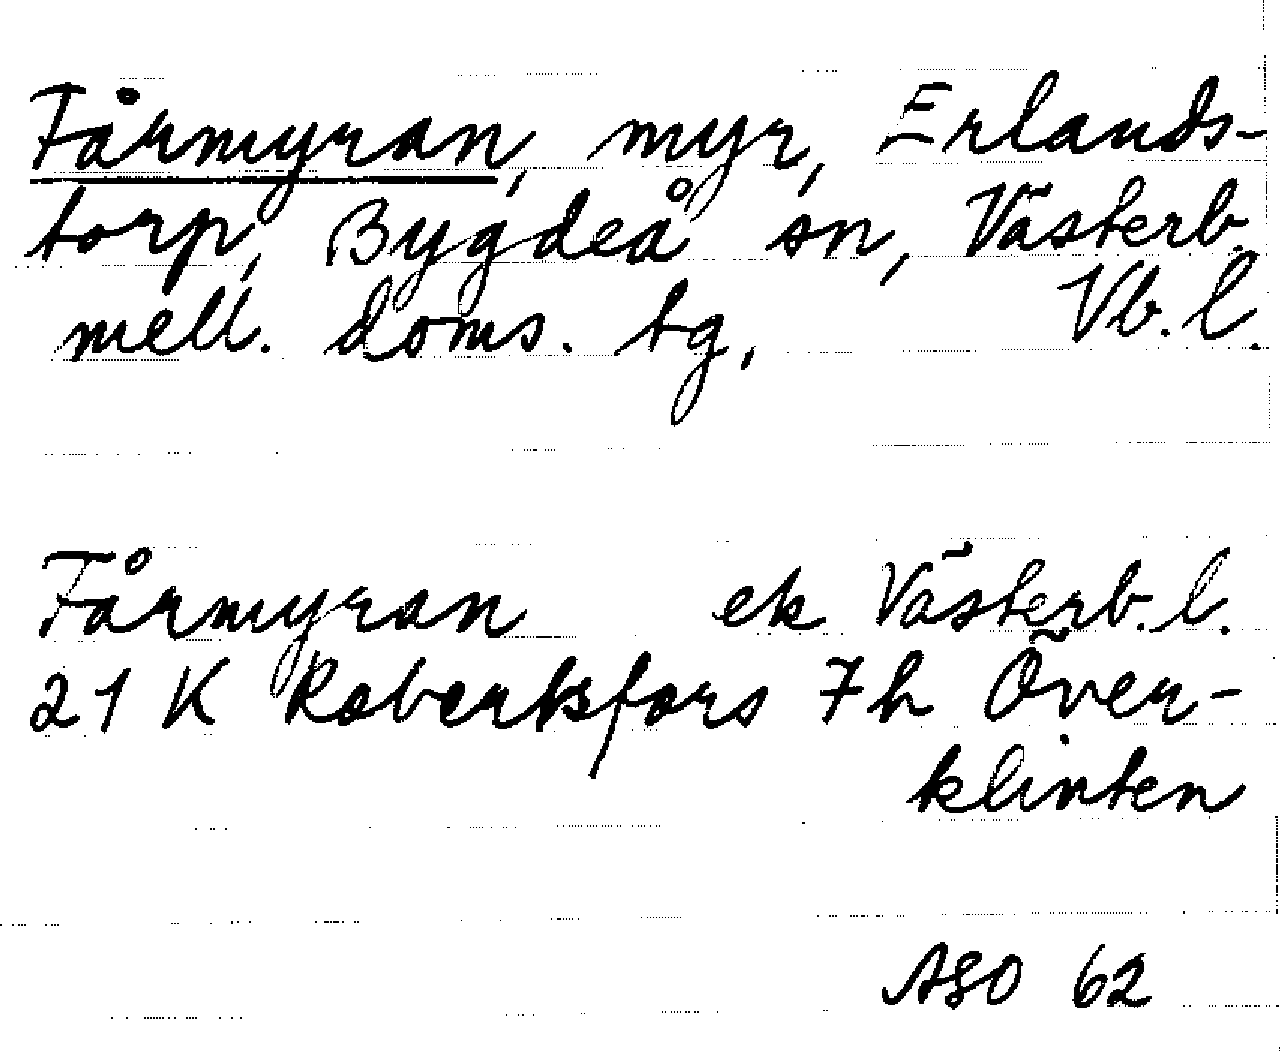 Fårmyran, myr, Erlands-
torp, Bygdeå sn, Västerb.
mell. doms. tg, Vb. l.
Fårmyran ek Västerb. l.
21 K Robertsfors 7h Över-
klinten
ASO 62